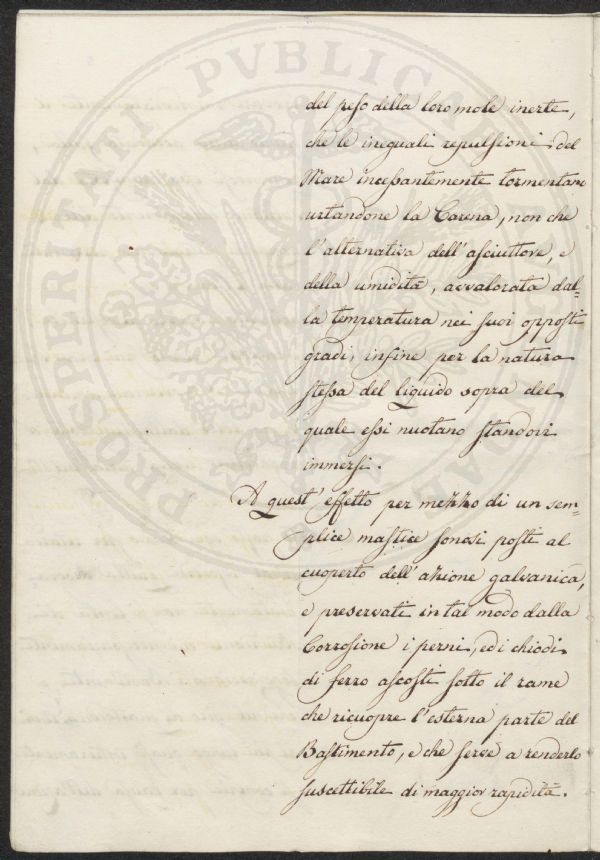 del peso della loro mole inerte,
che le ineguali repulsioni del
Mare incessantemente tormentano
urtandone la Carena, non che
l'alternativa dell'asciuttore, e
della umidità, avvalorata dal=
la temperatura nei suoi opposti
gradi, infine per la natura
stessa del liquido sopra del
quale essi nuotano standovi
immersi.
A quest'effetto per mezzo di un sem=
plice mastice sonosi posti al
cuoperto dell'azione galvanica,
e preservati in tal modo dalla
Corrosione i perni, ed i chiodi
di ferro ascosti sotto il rame
che ricuopre l'esterna parte del
Bastimento, e che serve a renderlo
suscettibile di maggior rapidità.
PROSPERITATI PVBLICAE